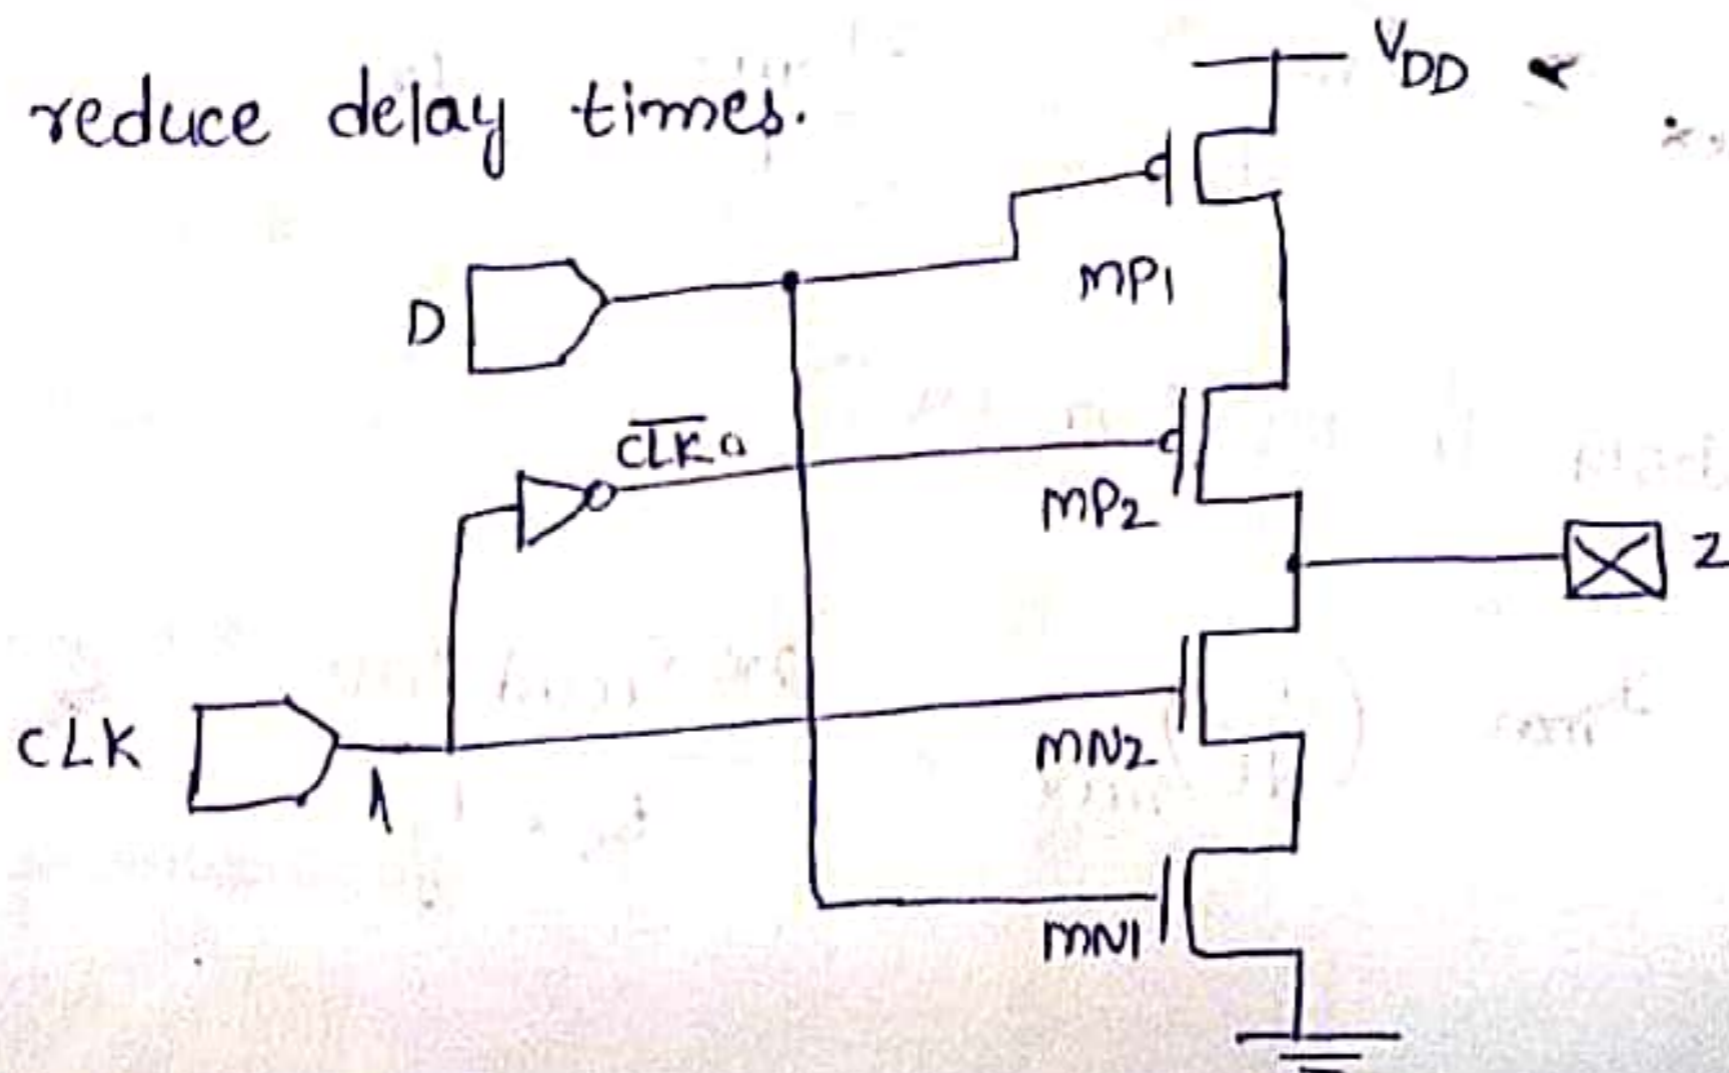 reduce delay times.
VDD
D
MP1
CLK
MP2
Z
CLK
1
MN2
MN1